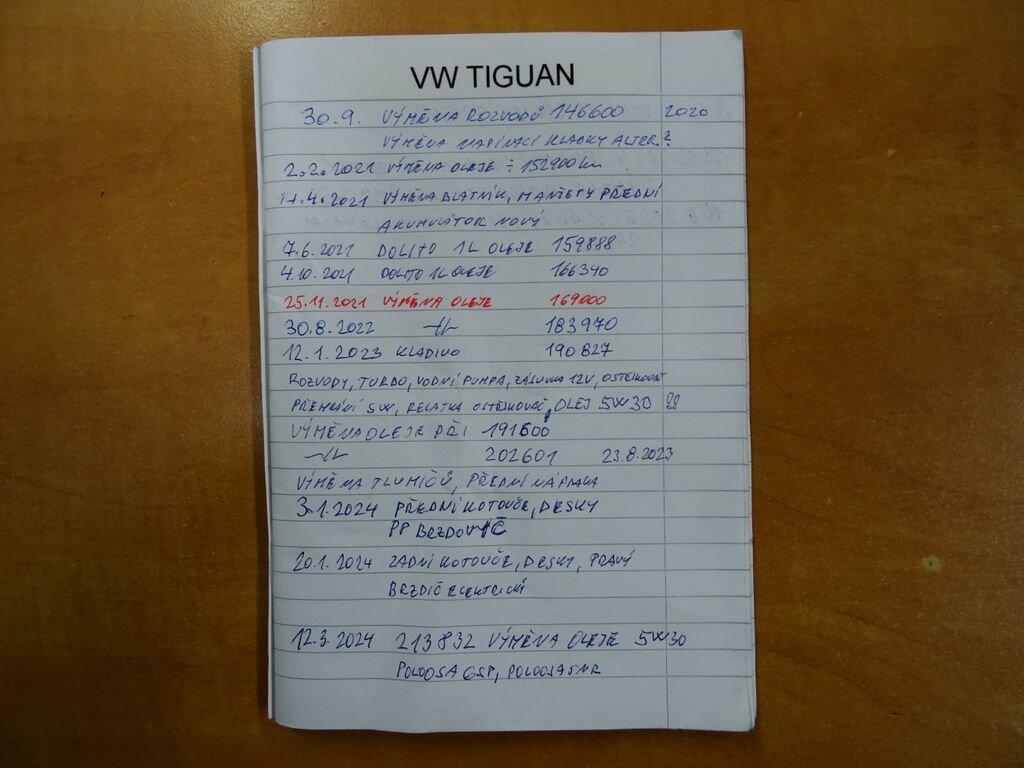 VW TIGUAN
30.9. VÝMĚNA ROZVODŮ 146600 2020
VÝMĚNA NAPÍNACÍ KLADKY ALTER.
2.2.2021 VÝMĚNA OLEJE ÷ 152900 km
14.4.2021 VÝMĚNA BLATNÍK, MANŽETY PŘEDNÍ
AKUMULÁTOR NOVÝ
7.6.2021 DOLITO 1L OLEJE 159888
4.10.2021 DOLITO 1L OLEJE 166340
25.11.2021 VÝMĚNA OLEJE 169000
30.8.2022 -//- 183970
12.1.2023 KLADIVO 190827
ROZVODY, TURBO, VODNÍ PUMPA, ZÁSUVKA 12V, OSTŘIKOVAČ
SW, RELATKA OSTŘIKOVAČ, OLEJ 5W30 !!
VÝMĚNA OLEJE PŘI 191600
-//- 202601 23.8.2023
VÝMĚNA TLUMIČŮ, PŘEDNÍ NÁPRAVA
3.1.2024 PŘEDNÍ KOTOUČE, DESKY
PP
20.1.2024 ZADNÍ KOTOUČE, DESKY, PRAVÝ
BRZDIČ ELEKTRICKÝ
12.3.2024 213832 VÝMĚNA OLEJE 5W30
POLOOSA GSP, POLOOSA SNR